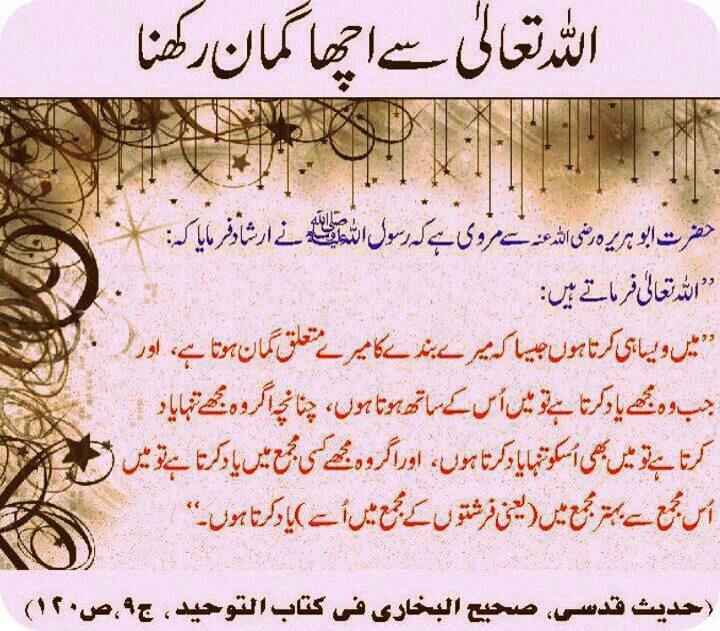 اللہ تعالیٰ سے اچھا گمان رکھنا
حضرت ابو ہریرہ رضی اللہ عنہ سے مروی ہے کہ رسول اللہ ﷺ نے ارشاد فرمایا کہ:
”اللہ تعالیٰ فرماتے ہیں:
”میں ویسا ہی کرتا ہوں جیسا کہ میرے بندے کا میرے متعلق گمان ہوتا ہے، اور
جب وہ مجھے یاد کرتا ہے تو میں اُس کے ساتھ ہوتا ہوں، چنانچہ اگر وہ مجھے تنہا یاد
کرتا ہے تو میں بھی اُسکو تنہا یاد کرتا ہوں، اور اگر وہ مجھے کسی مجمع میں یاد کرتا ہے تو میں
اُس مجمع سے بہتر مجمع میں (یعنی فرشتوں کے مجمع میں اُسے) یاد کرتا ہوں۔“
(حدیث قدسی، صحیح البخاری فی کتاب التوحید، ج۹،ص۱۲۰)